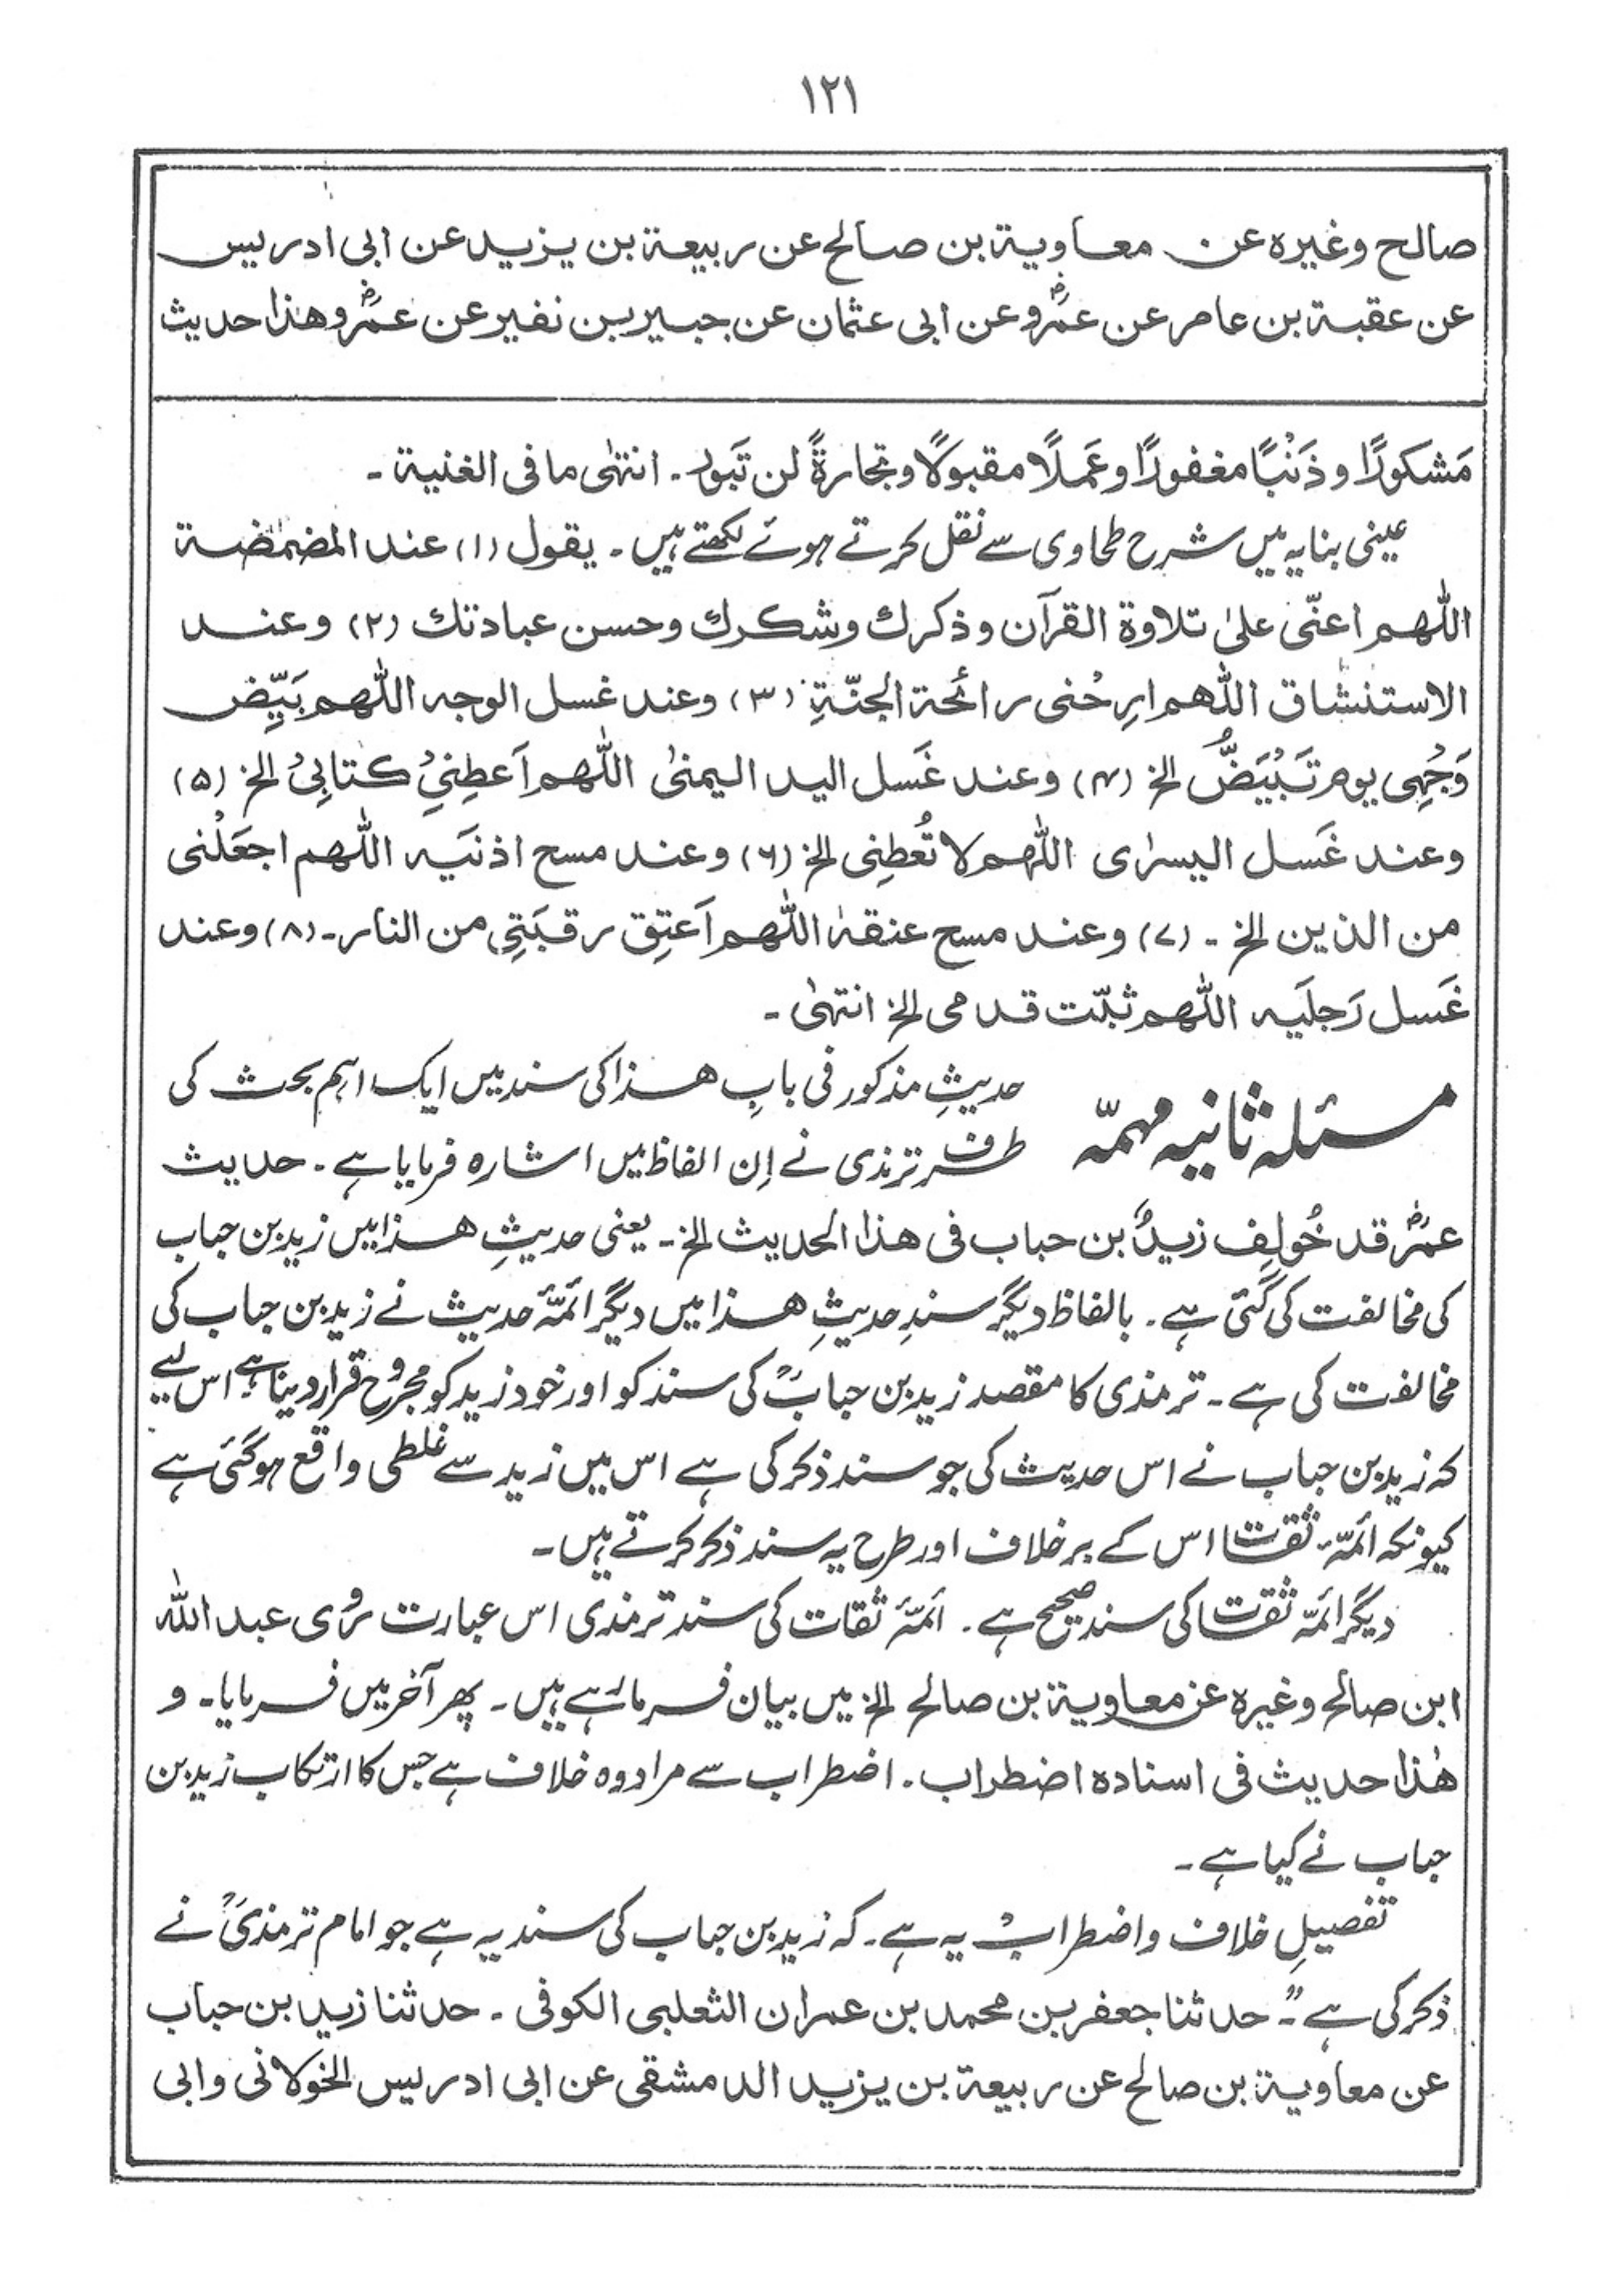 ۱۲۱
صالح وغیرہ عن معاویة بن صالح عن ربیعة بن یزید عن ابی ادریس
عن عقبة بن عامر عن عمرؓ وعن ابی عثمان عن جبیر بن نفیر عن عمرؓ وھذا حدیث
مَشکورًا وذَنْبًا مغفورًا وعَملًا مقبولًا وتجارةً لن تَبور۔ انتھٰی ما فی الغنیة۔
عینی بنایہ میں شرح طحاوی سے نقل کرتے ہوئے لکھتے ہیں۔ یقول (۱) عند المضمضة
اللّٰھم اعنّی علیٰ تلاوة القرآن وذکرك وشکرك وحسن عبادتك (۲) وعند
الاستنشاق اللّٰھم ارِحْنی رائحة الجنّةِ (۳) وعند غسل الوجہ اللّٰھم بَیِّض
وَجْھِی یوم تَبْیَضُّ الخ (۴) وعند غَسل الید الیمنیٰ اللّٰھم اَعطِنِیْ کتابِیْ الخ (۵)
وعند غَسل الیسرٰی اللّٰھم لا تُعطِنِی الخ (۶) وعند مسح اذنَیہ اللّٰھم اجعَلْنی
من الذین الخ۔ (۷) وعند مسح عنقہٰ اللّٰھم اَعتِق رقبَتِی من النار۔ (۸) وعند
غَسل رَجلَیہ اللّٰھم ثبّت قدمی الخ انتھٰی۔
مسئلہ ثانیہ مہمّہ
حدیثِ مذکور فی بابِ ھذا کی سند میں ایک اہم بحث کی
طرف ترمذی نے اِن الفاظ میں اشارہ فرمایا ہے۔ حدیث
عمرؓ قد خُولِف زیدُ بن حباب فی ھذا الحدیث الخ۔ یعنی حدیثِ ھذا میں زید بن حباب
کی مخالفت کی گئی ہے۔ بالفاظ دیگر سندِ حدیثِ ھذا میں دیگر ائمّۂ حدیث نے زید بن حباب کی
مخالفت کی ہے۔ ترمذی کا مقصد زید بن حبابؒ کی سند کو اور خود زید کو مجروح قرار دینا ہے۔ اس لیے
کہ زید بن حباب نے اس حدیث کی جو سند ذکر کی ہے اس میں زید سے غلطی واقع ہوگئی ہے
کیونکہ ائمّہ ثقات اس کے برخلاف اور طرح یہ سند ذکر کرتے ہیں۔
دیگر ائمّہ ثقات کی سند صحیح ہے۔ ائمّۂ ثقات کی سند ترمذی اس عبارت رُوِی عبد اللّٰہ
ابن صالح وغیرہ عن معاویة بن صالح الخ میں بیان فرما رہے ہیں۔ پھر آخر میں فرمایا۔ و
ھٰذا حدیث فی اسنادہ اضطراب۔ اضطراب سے مراد وہ خلاف ہے جس کا ارتکاب زید بن
حباب نے کیا ہے۔
تفصیلِ خلاف و اضطراب یہ ہے۔ کہ زید بن حباب کی سند یہ ہے جو امام ترمذیؒ نے
ذکر کی ہے "۔ حدثنا جعفر بن محمد بن عمران الثعلبی الکوفی۔ حدثنا زید بن حباب
عن معاویة بن صالح عن ربیعة بن یزید الدمشقی عن ابی ادریس الخولانی وابی